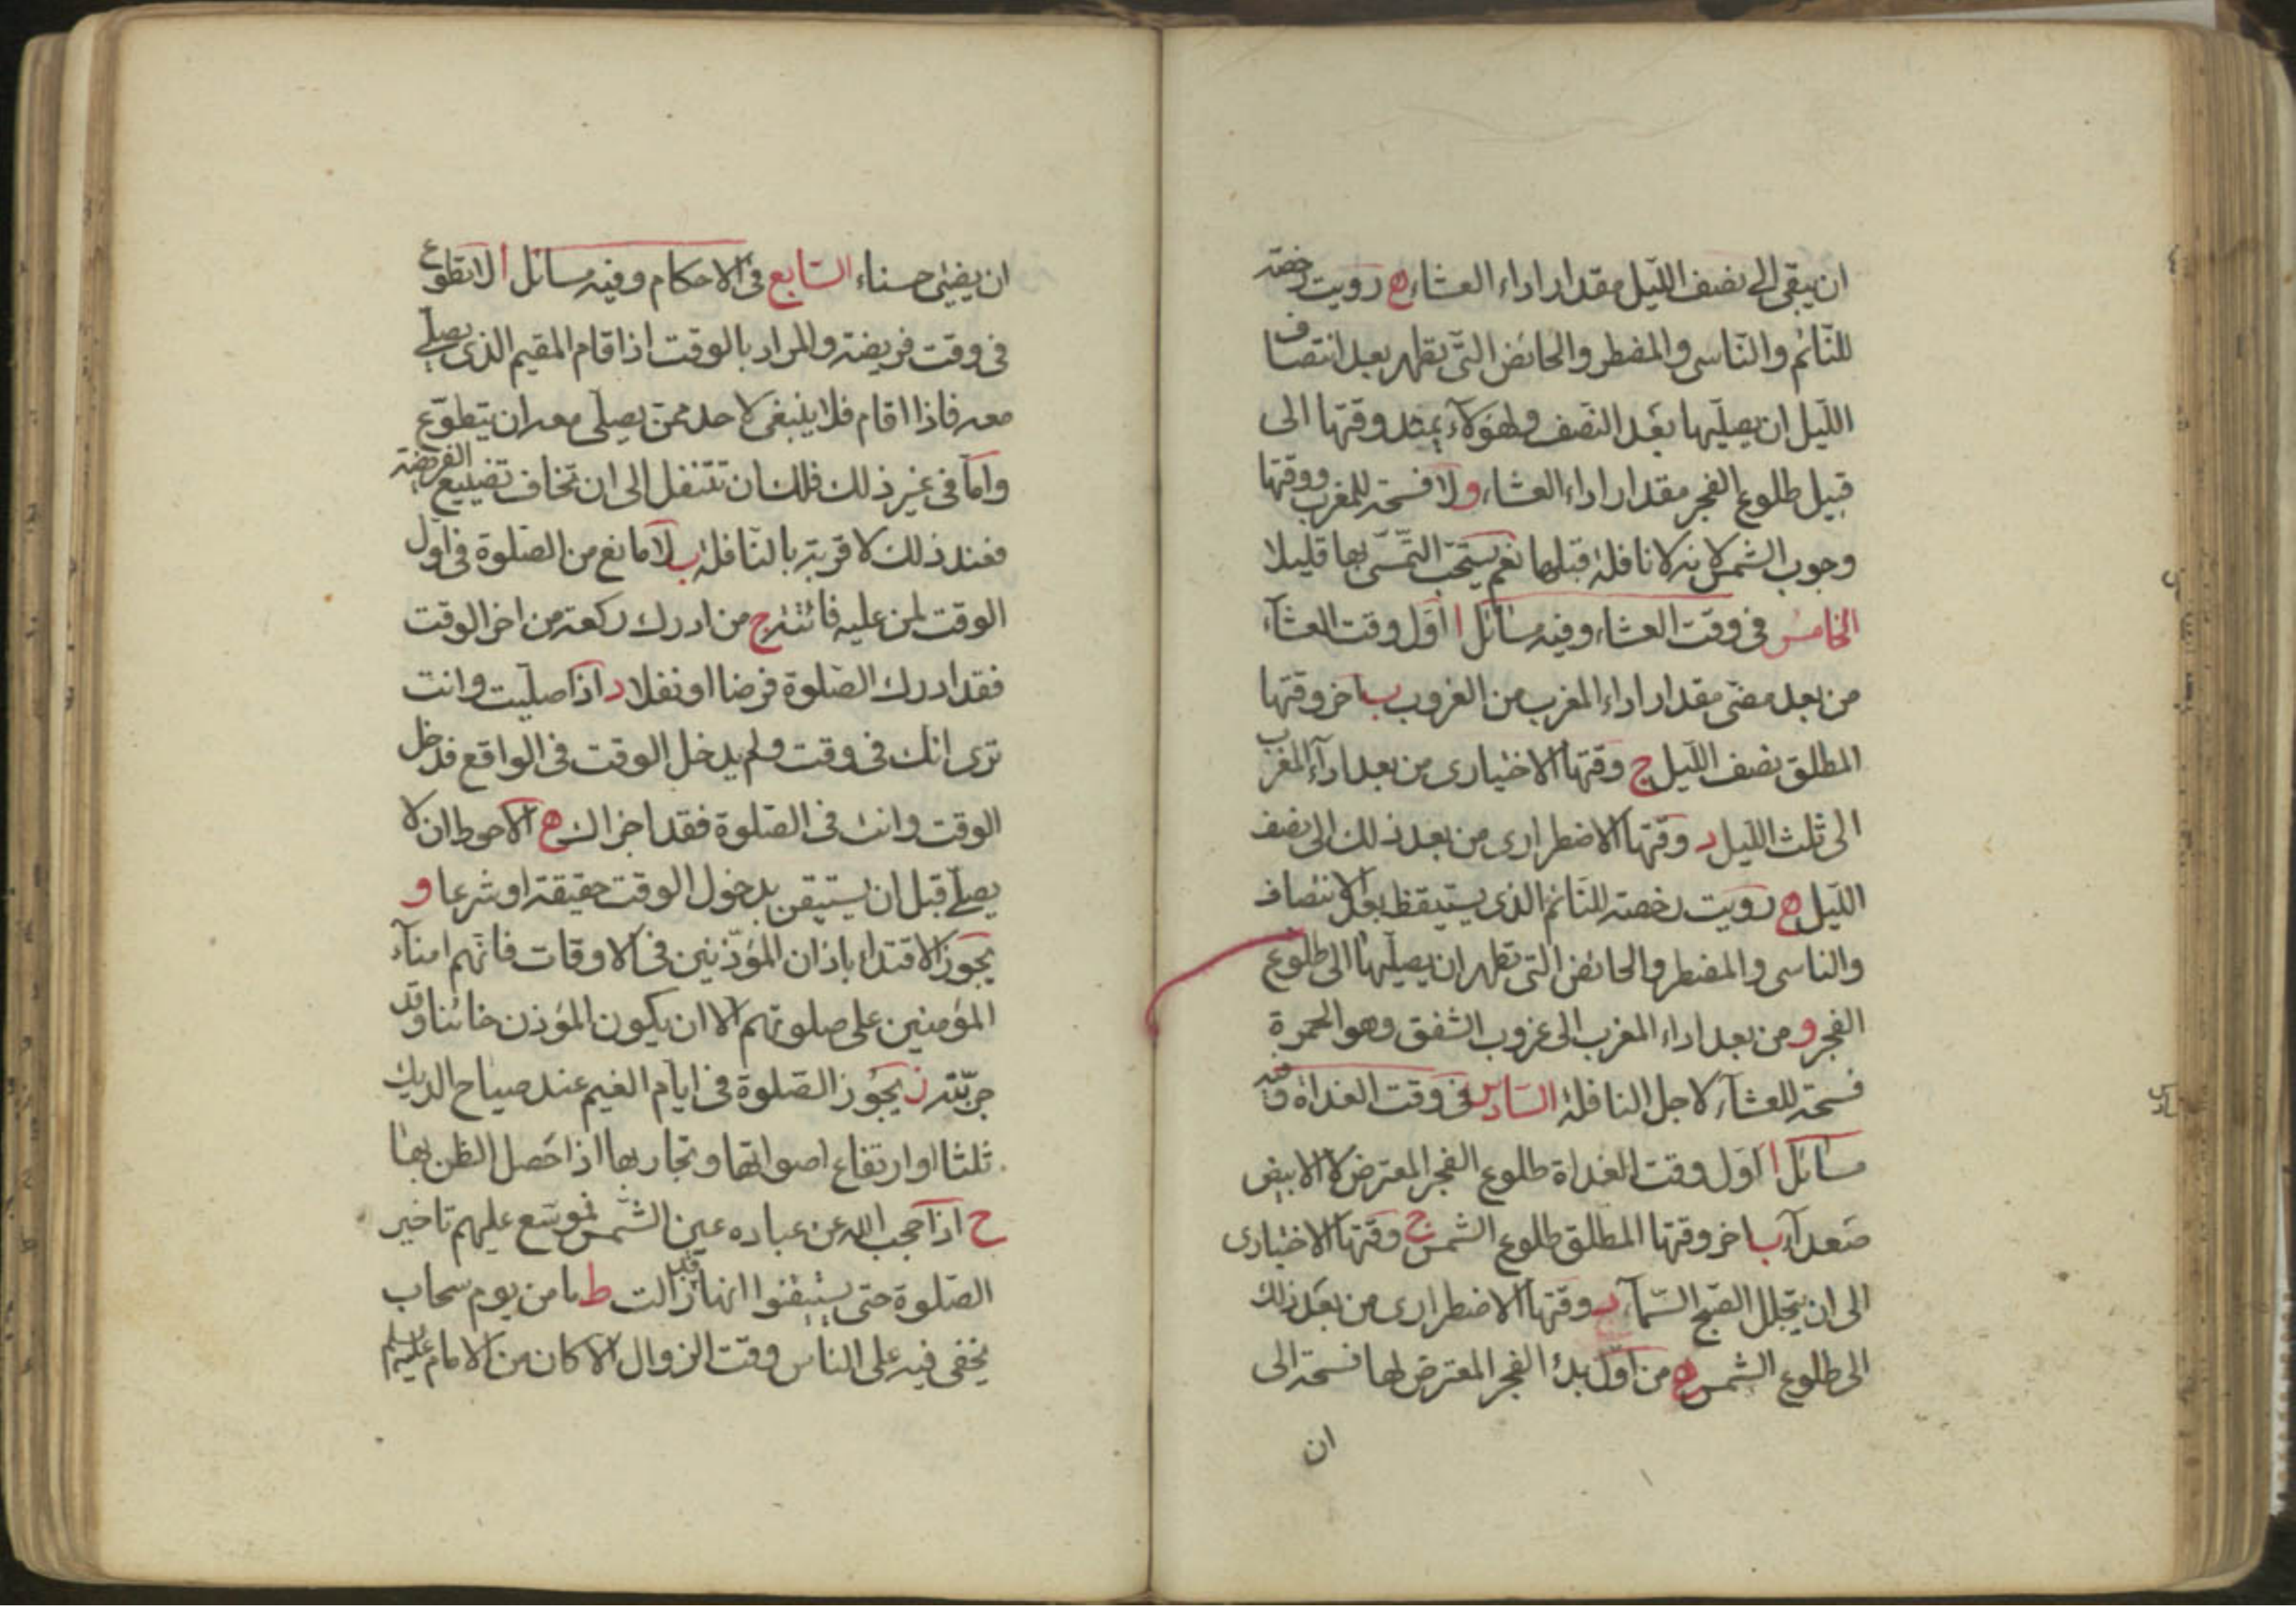 ان يبقى الى نصف الليل مقدار اداء العشاء ه رويت رخصة
للنائم والناسى والمضطر والحائض التى تطهر بعد انتصاف
الليل ان يصليها بعد النصف ولهؤلاء يمتد وقتها الى
قبيل طلوع الفجر مقدار اداء العشاء و لا فسحة للمغرب ووقتها
وجوب الشمس لانه لا نافلة قبلها نعم يستحب التمسى بها قليلا
الخامس فى وقت العشاء وفيه مسائل ا اول وقت العشاء
من بعد مضى مقدار اداء المغرب من الغروب ب اخر وقتها
المطلق نصف الليل ج وقتها الاختيارى من بعد اداء المغرب
الى ثلث الليل د وقتها الاضطرارى من بعد ذلك الى نصف
الليل ه رويت رخصة للنائم الذى يستيقظ بعد الانتصاف
والناسى والمضطر والحائض التى تطهر ان يصليها الى طلوع
الفجر و من بعد اداء المغرب الى غروب الشفق وهو الحمرة
فسحة للعشاء لاجل النافلة السادس فى وقت الغداة وفيه
مسائل ا اول وقت الغداة طلوع الفجر المعترض لا الابيض
صعداء ب اخر وقتها المطلق طلوع الشمس ج وقتها الاختيارى
الى ان يتجلل الصبح السماء د وقتها الاضطرارى من بعد ذلك
الى طلوع الشمس ه من اول بدء الفجر المعترض لها فسحة الى
ان
ان يضيئ حسناء السابع فى الاحكام وفيه مسائل ا لا تطوع
فى وقت فريضة والمراد بالوقت اذا قام المقيم الذى يصلى
معه فاذا اقام فلا ينبغى لاحد ممن يصلى معه ان يتطوع
واما فى غير ذلك فلك ان تتنفل الى ان تخاف تضييع الفريضة
فعند ذلك لا قربة بالنافلة ب لا مانع من الصلوة فى اول
الوقت لمن عليه فائتة ج من ادرك ركعة من اخر الوقت
فقد ادرك الصلوة فرضا او نفلا د اذا صليت وانت
ترى انك فى وقت ولم يدخل الوقت فى الواقع فدخل
الوقت وانت فى الصلوة فقد اجزاك ه الاحوط ان لا
يصلى قبل ان يستيقن بدخول الوقت حقيقة او شرعا و
يجوز الاقتداء باذان المؤذنين فى الاوقات فانهم امناء
المؤمنين على صلوتهم الا ان يكون المؤذن خائنا وقد
جربته ز يجوز الصلوة فى ايام الغيم عند صياح الديك
ثلثا او ارتفاع اصواتها وتجاربها اذا حصل الظن بها
ح اذا حجب الله عن عباده عين الشمس فموسع عليهم تاخير
الصلوة حتى يستيقنوا انها قد زالت ط ما من يوم سحاب
يخفى فيه على الناس وقت الزوال الا كان من الامام عليه السلم